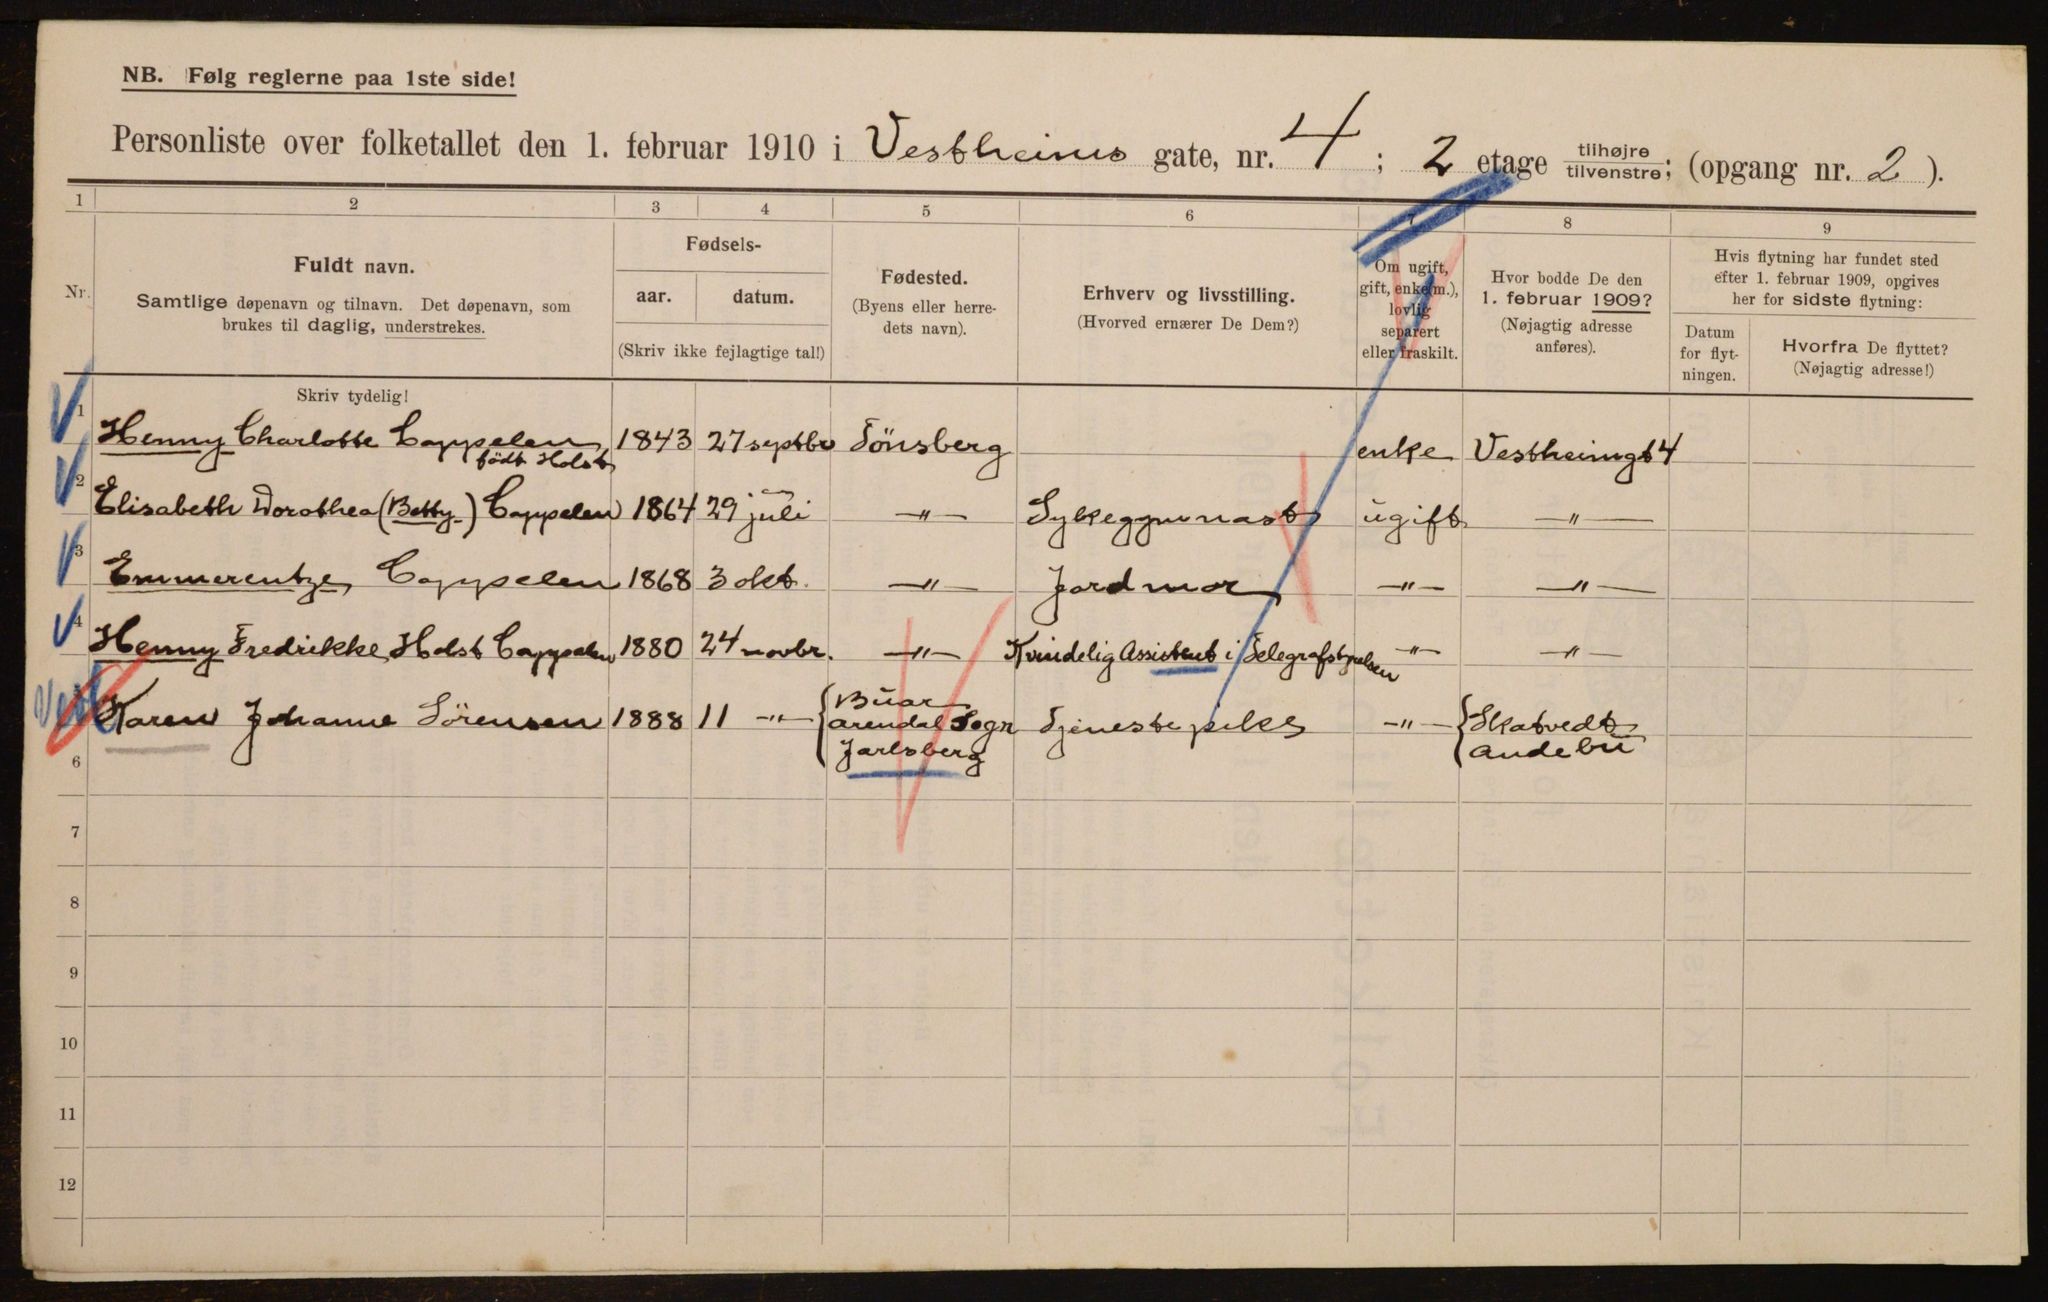 NB. Følg reglerne paa 1ste side!
Personliste over folketallet den 1. februar 1910 i Vestheims gate, nr. 4 ; 2 etage tilhøjre tilvenstre; (opgang nr. 2 ).
1 2 3 4 5 6 7 8 9
Nr.
Fuldt navn.
Samtlige døpenavn og tilnavn. Det døpenavn, som
brukes til daglig, understrekes.
Skriv tydelig!
Fødsels-
aar. datum.
(Skriv ikke fejlagtige tal!)
Fødested.
(Byens eller herre-
dets navn).
Erhverv og livsstilling.
(Hvorved ernærer De Dem?)
Om ugift,
gift, enke(m.),
lovlig
separert
eller fraskilt.
Hvor bodde De den
1. februar 1909?
(Nøjagtig adresse
anføres).
Hvis flytning har fundet sted
efter 1. februar 1909, opgives
her for sidste flytning:
Datum
for flyt-
ningen.
Hvorfra De flyttet?
(Nøjagtig adresse!)
1 Henny Charlotte Cappelen 1843 27 septbr Tönsberg enke Vestheimgt 4
födt Holst
2 Elisabeth Dorothea (Betty) Cappelen 1864 29 juli —"— Sykegymnast ugift —"—
3 Emmerentze Cappelen 1868 3 okt. —"— Jordmor —"— —"—
4 Henny Fredrikke Holst Cappelen 1880 24 novbr. —"— Kvindelig Assistent i Telegrafstyrelsen —"— —"—
Karen Johanne Sörensen 1888 11 —"— { Buar Arendal Sogn Jarlsberg Tjenestepike —"— { Skatvedt Andebu
6
7
8
9
10
11
12